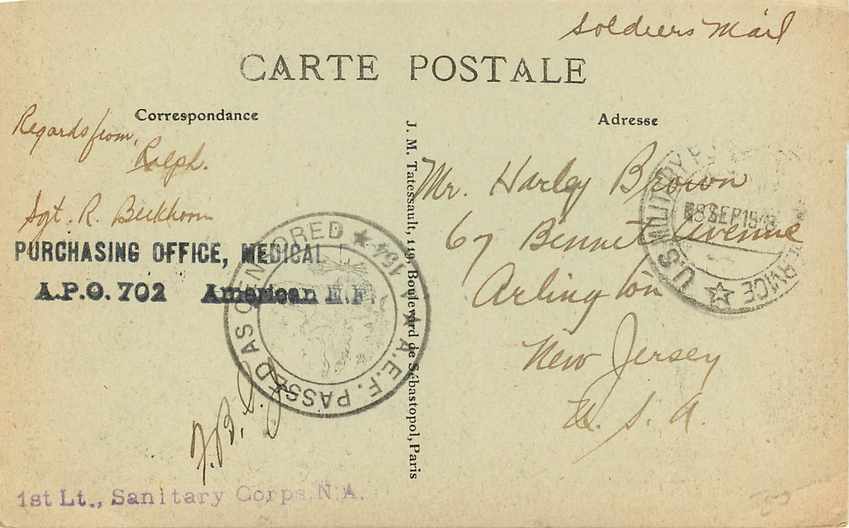 Soldiers Mail
CARTE POSTALE
Correspondance
Adresse
Regards from,
Ralph.
Sgt. R. Beckhorn
PURCHASING OFFICE, MEDICAL
A.P.O. 702 American E.F.
A.E.F. PASSED AS CENSORED ★ 164
J. M. Tatessault, 119, Boulevard de Sébastopol, Paris
Mr. Harley Brown
67 Bennet Avenue
Arlington
New Jersey
U. S. A.
U.S. MILITARY SERVICE ☆
SEP
1st Lt., Sanitary Corps, N.A.